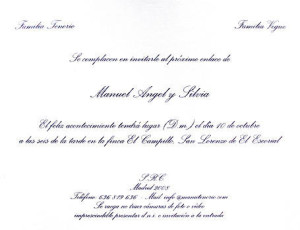 Familia Tenorio
Familia Vegue
Se complacen en invitarle al próximo enlace de
Manuel Angel y Silvia
El feliz acontecimiento tendrá lugar (D.m.) el día 10 de octubre
a las seis de la tarde en la finca El Campillo, San Lorenzo de El Escorial
S.R.C.
Madrid 2008
Teléfono: 636 819 636 Mail: info@
Se ruega no traer cámaras de foto o video
imprescindible presentar d.n.i. o invitación a la entrada